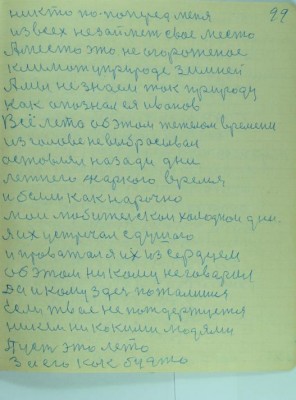 99
никто по-поперед меня
из всех не займет свое место
А место это не огороженое
климат и природе зимней
А мы не знаем так природу
как опознал ея иванов
Всё лето об этом тяжелом времени
из головы не выбрасивал
оставлял назади дни
летнего жаркого время
и были как нарочно
мои любителской холодной дни.
Я их устречал с душого
и провожал я их из сердцем
об этом ни кому не говарил
Да и кому здесь пожалишся
Если твое не подержуется
никем ни какими людями
Пуст это лето
За его как будто